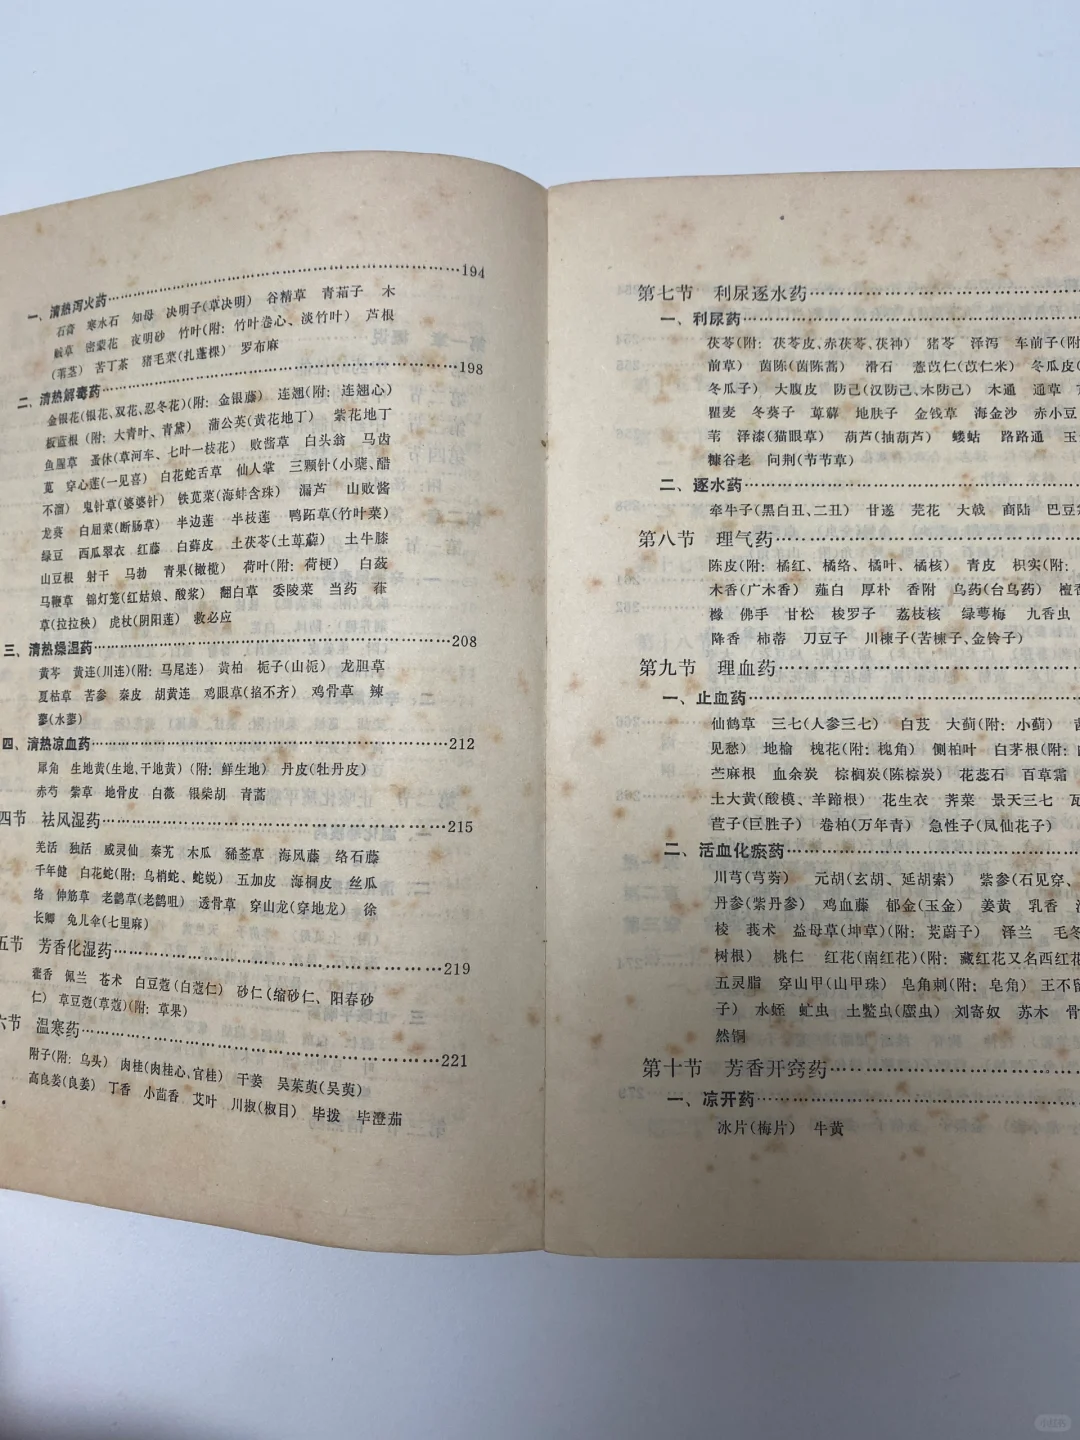 一、清热泻火药……194
石膏 寒水石 知母 决明子(草决明) 谷精草 青葙子 木
贼草 密蒙花 夜明砂 竹叶(附: 竹叶卷心、淡竹叶) 芦根
(苇茎) 苦丁茶 猪毛菜(扎蓬棵) 罗布麻
二、清热解毒药……198
金银花(银花、双花、忍冬花)(附: 金银藤) 连翘(附: 连翘心)
板蓝根 (附: 大青叶、青黛) 蒲公英(黄花地丁) 紫花地丁
鱼腥草 蚤休(草河车、七叶一枝花) 败酱草 白头翁 马齿
苋 穿心莲(一见喜) 白花蛇舌草 仙人掌 三颗针(小蘗、醋
不溜) 鬼针草(婆婆针) 铁苋菜(海蚌含珠) 漏芦 山败酱
龙葵 白屈菜(断肠草) 半边莲 半枝莲 鸭跖草(竹叶菜)
绿豆 西瓜翠衣 红藤 白藓皮 土茯苓(土萆薢) 土牛膝
山豆根 射干 马勃 青果(橄榄) 荷叶(附: 荷梗) 白蔹
马鞭草 锦灯笼(红姑娘、酸浆) 翻白草 委陵菜 当药 葎
草(拉拉秧) 虎杖(阴阳莲) 救必应
三、清热燥湿药……208
黄芩 黄连(川连)(附: 马尾连) 黄柏 栀子(山栀) 龙胆草
夏枯草 苦参 秦皮 胡黄连 鸡眼草(掐不齐) 鸡骨草 辣
蓼(水蓼)
四、清热凉血药……212
犀角 生地黄(生地、干地黄) (附: 鲜生地) 丹皮(牡丹皮)
赤芍 紫草 地骨皮 白薇 银柴胡 青蒿
四节 祛风湿药……215
羌活 独活 威灵仙 秦艽 木瓜 豨莶草 海风藤 络石藤
千年健 白花蛇(附: 乌梢蛇、蛇蜕) 五加皮 海桐皮 丝瓜
络 伸筋草 老鹳草(老鹳咀) 透骨草 穿山龙(穿地龙) 徐
长卿 兔儿伞(七里麻)
五节 芳香化湿药……219
藿香 佩兰 苍术 白豆蔻(白蔻仁) 砂仁(缩砂仁、阳春砂
仁) 草豆蔻(草蔻)(附: 草果)
六节 温寒药……221
附子(附: 乌头) 肉桂(肉桂心、官桂) 干姜 吴茱萸(吴萸)
高良姜(良姜) 丁香 小茴香 艾叶 川椒(椒目) 毕拨 毕澄茄
第七节 利尿逐水药……
一、利尿药……
茯苓(附: 茯苓皮、赤茯苓、茯神) 猪苓 泽泻 车前子(附
前草) 茵陈(茵陈蒿) 滑石 薏苡仁(苡仁米) 冬瓜皮(
冬瓜子) 大腹皮 防己(汉防己、木防己) 木通 通草
瞿麦 冬葵子 萆薢 地肤子 金钱草 海金沙 赤小豆
苇 泽漆(猫眼草) 葫芦(抽葫芦) 蝼蛄 路路通 玉
糠谷老 问荆(节节草)
二、逐水药……
牵牛子(黑白丑、二丑) 甘遂 芫花 大戟 商陆 巴豆
第八节 理气药……
陈皮(附: 橘红、橘络、橘叶、橘核) 青皮 枳实(附:
木香(广木香) 薤白 厚朴 香附 乌药(台乌药) 檀香
橼 佛手 甘松 梭罗子 荔枝核 绿萼梅 九香虫
降香 柿蒂 刀豆子 川楝子(苦楝子、金铃子)
第九节 理血药……
一、止血药……
仙鹤草 三七(人参三七) 白芨 大蓟(附: 小蓟)
见愁) 地榆 槐花(附: 槐角) 侧柏叶 白茅根(附:
苎麻根 血余炭 棕榈炭(陈棕炭) 花蕊石 百草霜
土大黄(酸模、羊蹄根) 花生衣 荠菜 景天三七 瓦
苣子(巨胜子) 卷柏(万年青) 急性子(凤仙花子)
二、活血化瘀药……
川芎(芎䓖) 元胡(玄胡、延胡索) 紫参(石见穿、
丹参(紫丹参) 鸡血藤 郁金(玉金) 姜黄 乳香
棱 莪术 益母草(坤草)(附: 茺蔚子) 泽兰 毛冬
树根) 桃仁 红花(南红花)(附: 藏红花又名西红花
五灵脂 穿山甲(山甲珠) 皂角刺(附: 皂角) 王不留
子) 水蛭 虻虫 土鳖虫(䗪虫) 刘寄奴 苏木 骨
然铜
第十节 芳香开窍药……
一、凉开药……
冰片(梅片) 牛黄